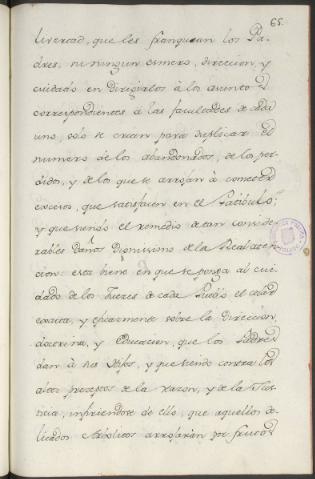 65.
livertad, que les franquean los Pa-
dres, ni ningun esmero, direccion, y
cuidado en dirigirlos à los asuntos
correspondientes à las facultades de cada
uno, solo se crian para duplicar el
numero de los abandonados, de los per-
didos, y de los que se arrojan à cometer
excesos, que satisfacen en el Patibulo;
y que siendo el remedio de tan conside-
rables daños dignisimo de la Real aten-
cion: esta tiene en que se ponga al cui-
dado de los Jueces de cada Pueblo el celar
exacta, y eficazmente sobre la Direccion,
doctrina, y Educacion, que los Padres
dan à sus Hijos, y que siendo contra los
altos preceptos de la razon, y de la Jus-
ticia, infiriendose de ello, que aquellos de-
licados arrojarán por frutos